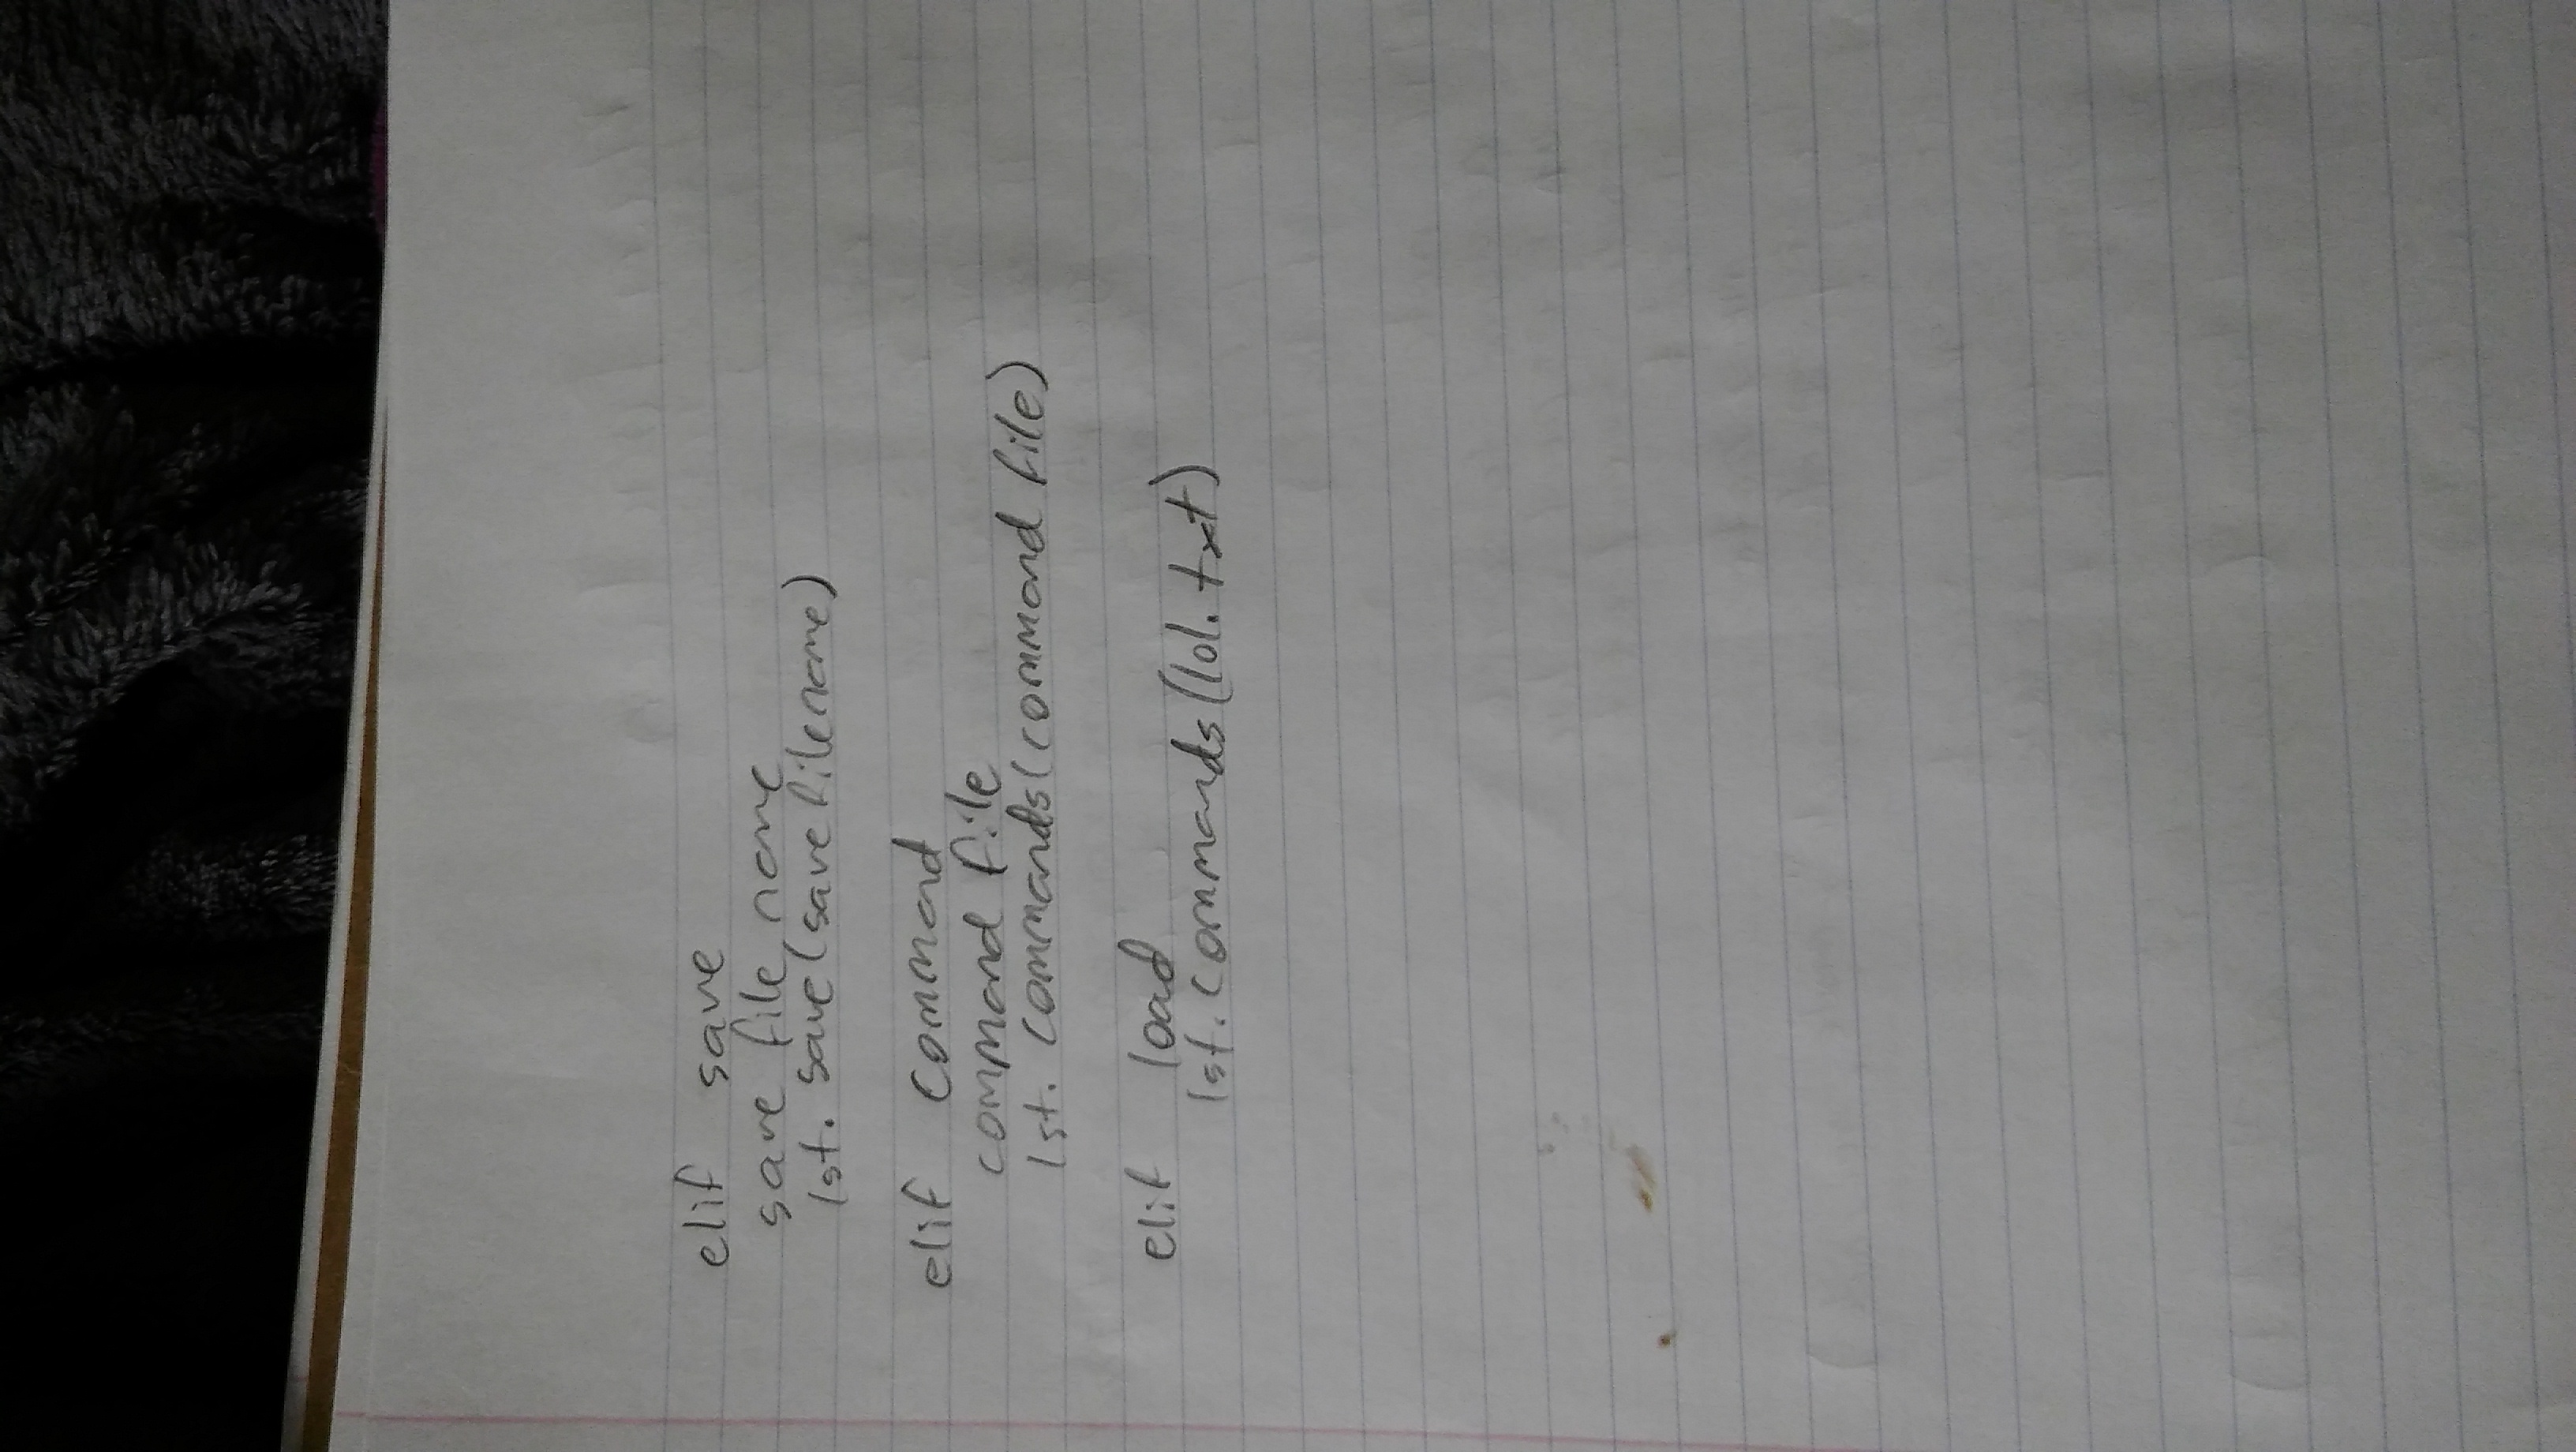 elif save
save file name
lst. save(save filename)
elif command
command file
lst. commands(command file)
elif load
lst. commands(lol.txt)